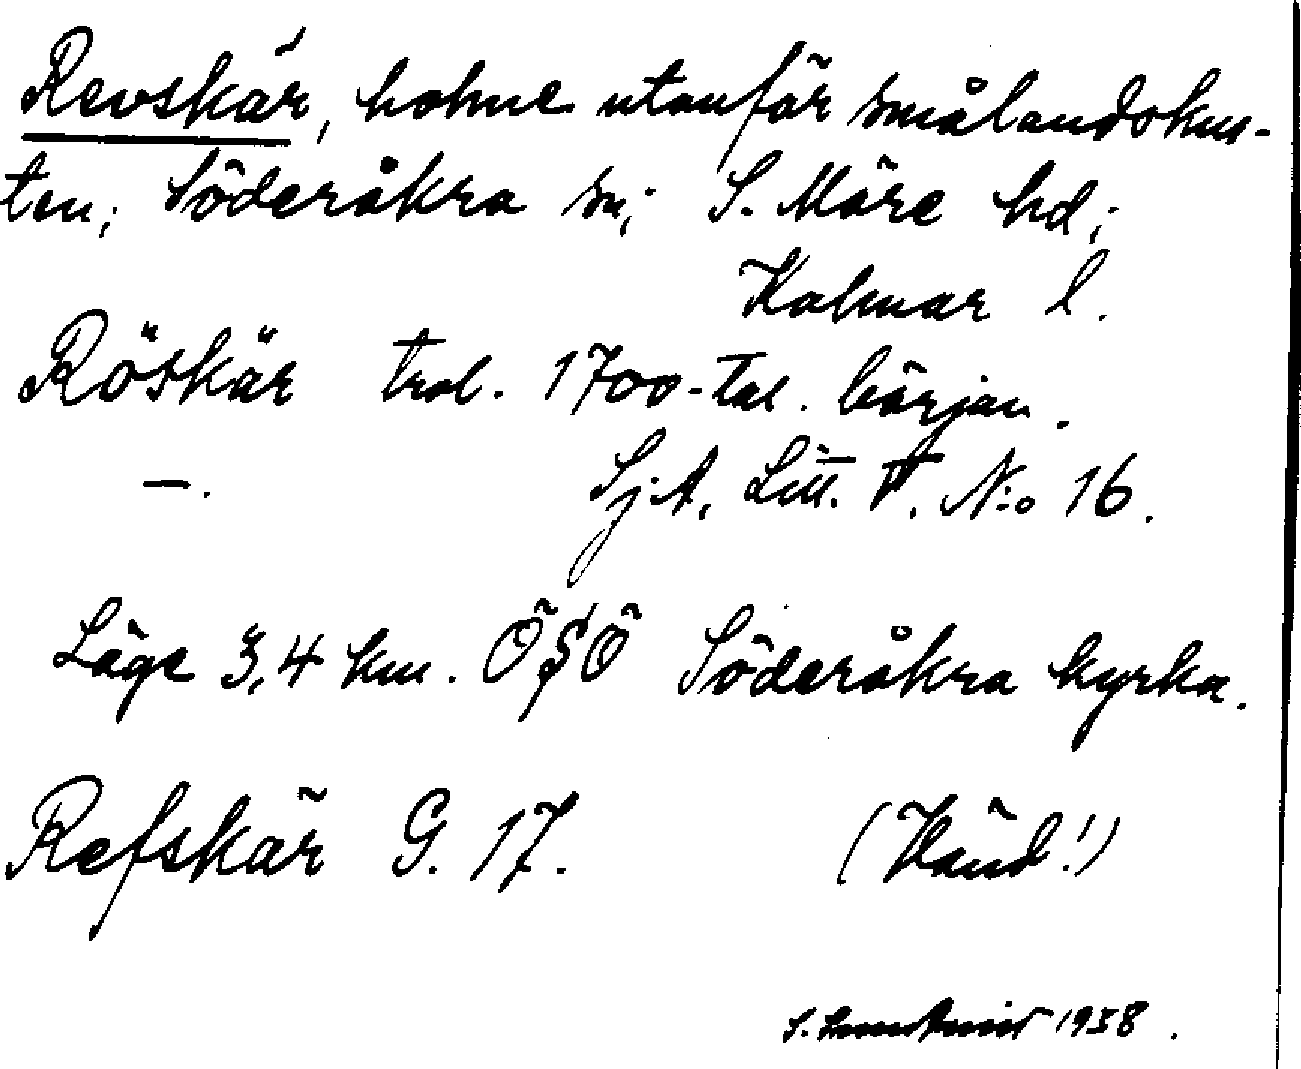 Revskär, holme utanför smålandskus-
ten; Söderåkra sn; S. Möre hd;
Kalmar l.
Röskär trol. 1700-tal. början.
—. Sj.A. Litt. V. N:o 16.
Läge 3,4 km. ÖSÖ Söderåkra kyrka.
Refskär G. 17. (Händ!)
S. 1938.